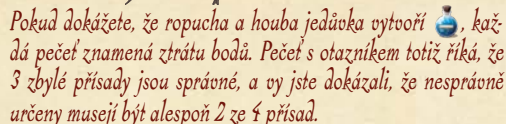 Pokud dokážete, že ropucha a houba jedůvka vytvoří , kaž-
dá pečeť znamená ztrátu bodů. Pečeť s otazníkem totiž říká, že
3 zbylé přísady jsou správné, a vy jste dokázali, že nesprávně
určeny musejí být alespoň 2 ze 4 přísad.